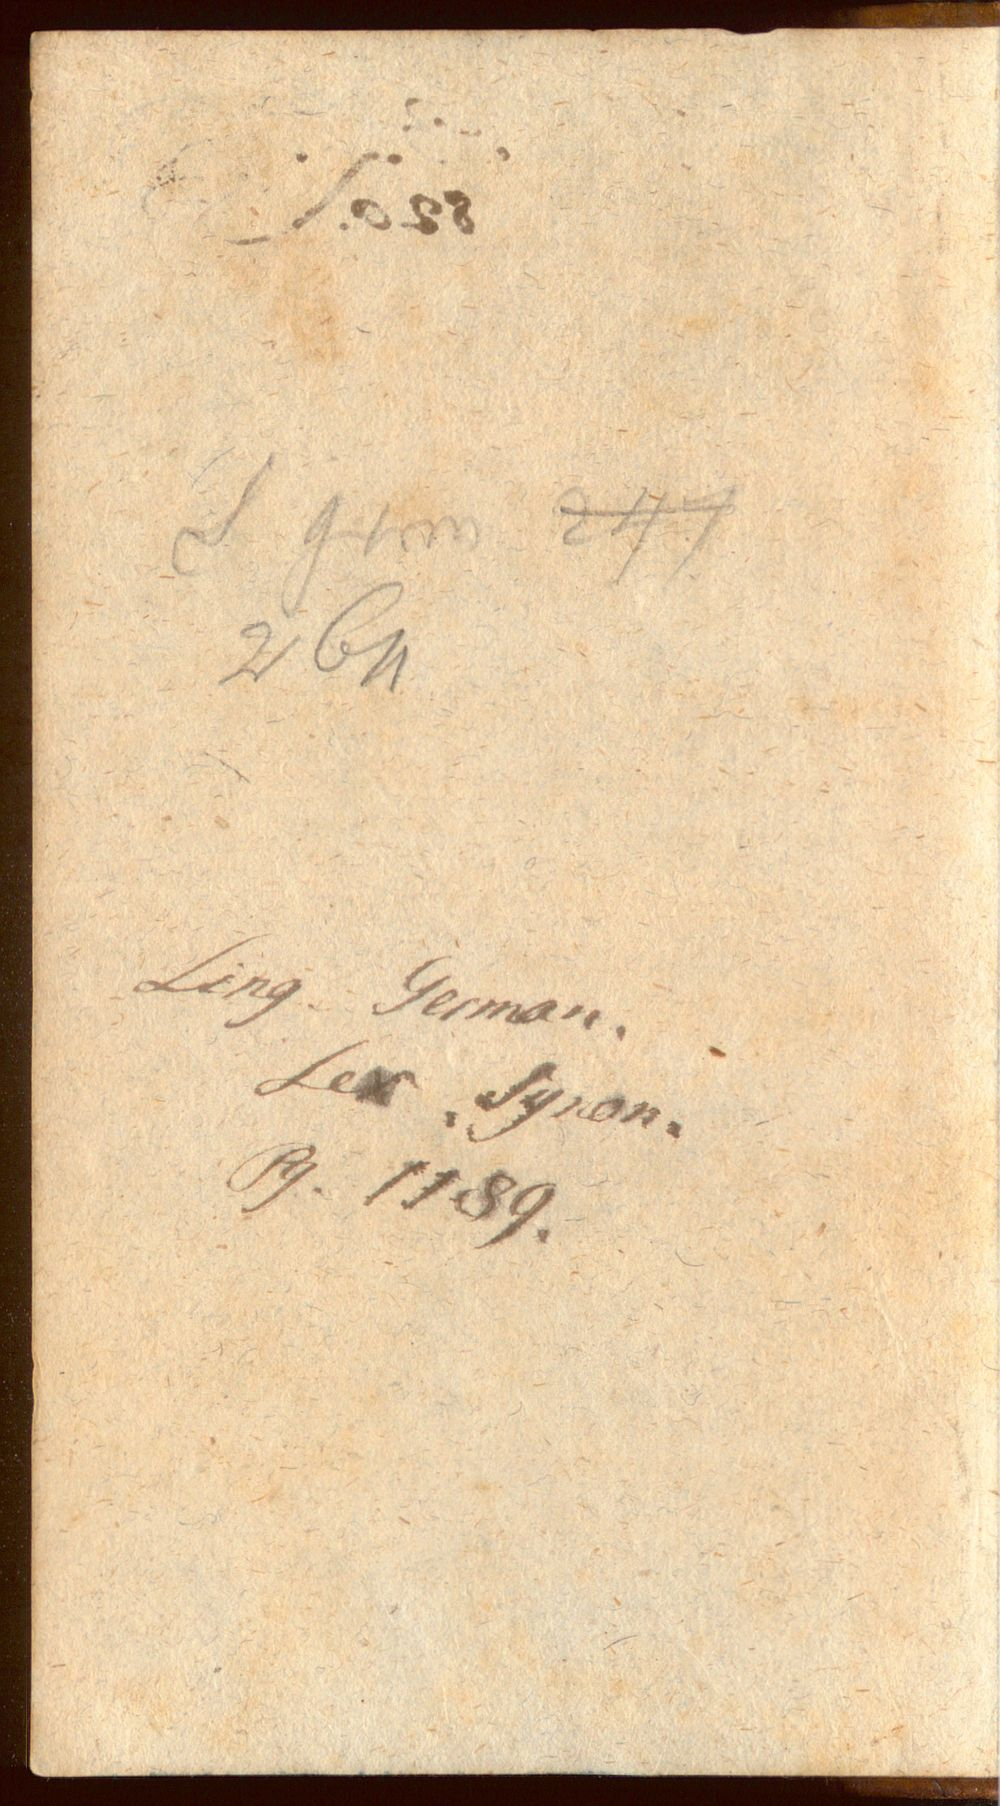 820.
L germ 247
2 Bn
Ling. German.
Lex. Synon.
Pg. 1189.